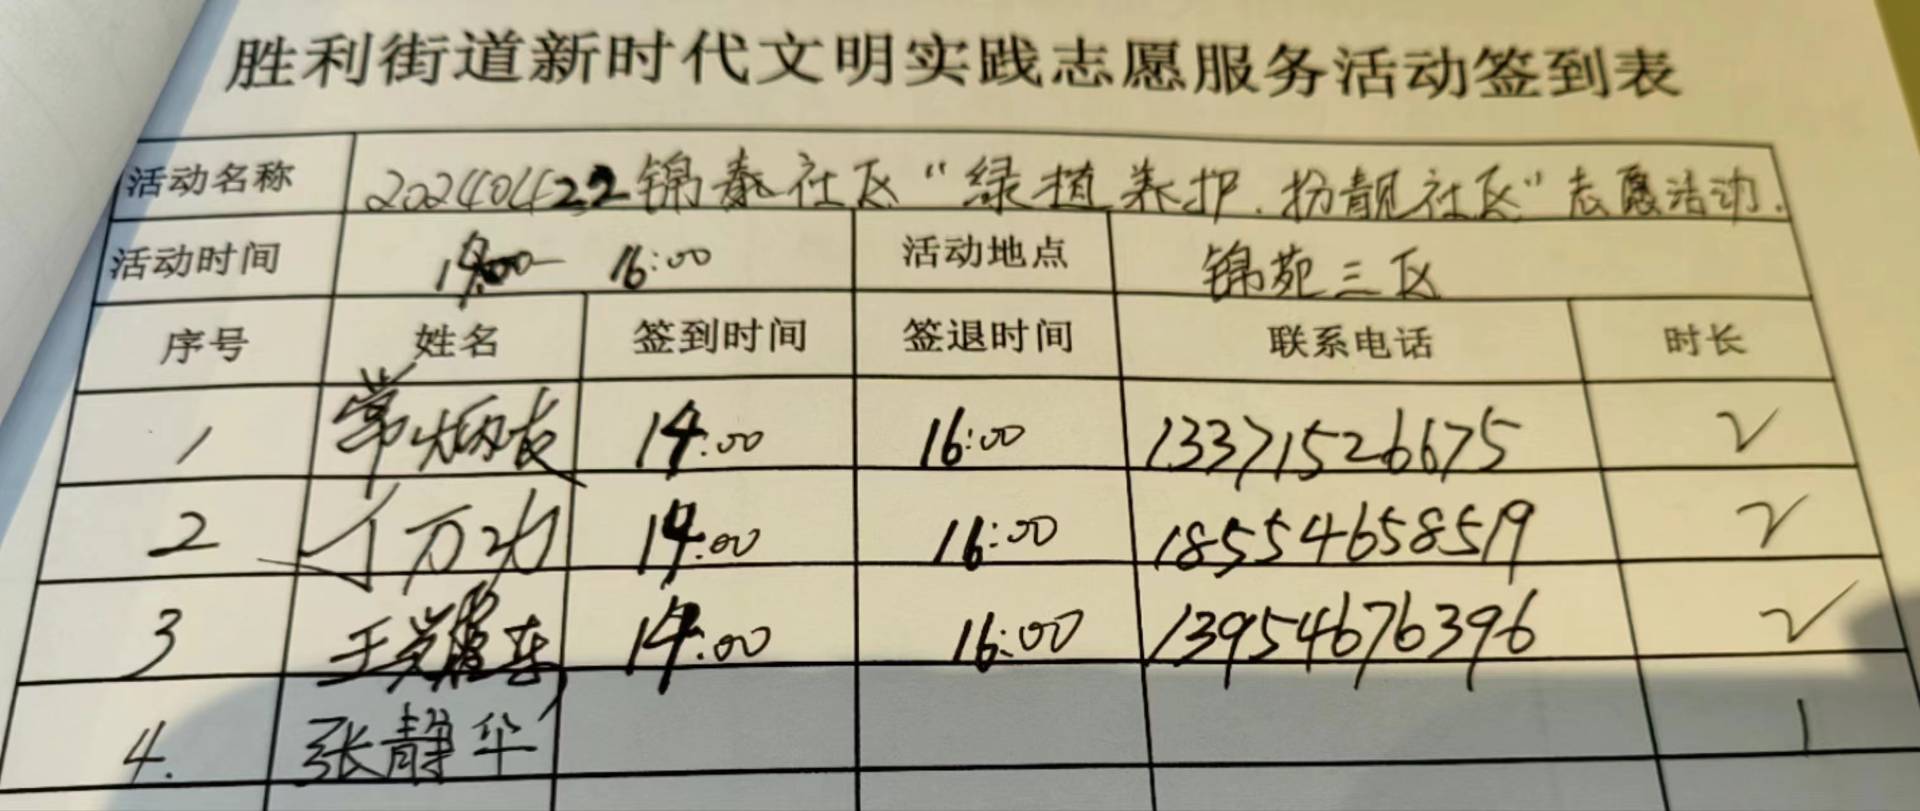 胜利街道新时代文明实践志愿服务活动签到表
活动名称 20240422锦泰社区“绿植养护.扮靓社区”志愿活动.
活动时间 14:00— 16:00 活动地点 锦苑三区
序号 姓名 签到时间 签退时间 联系电话 时长
1 常炳友 14:00 16:00 13371526675 2
2 万功 14:00 16:00 18554658519 2
3 王 14:00 16:00 13954676396 2
4. 张静华 1